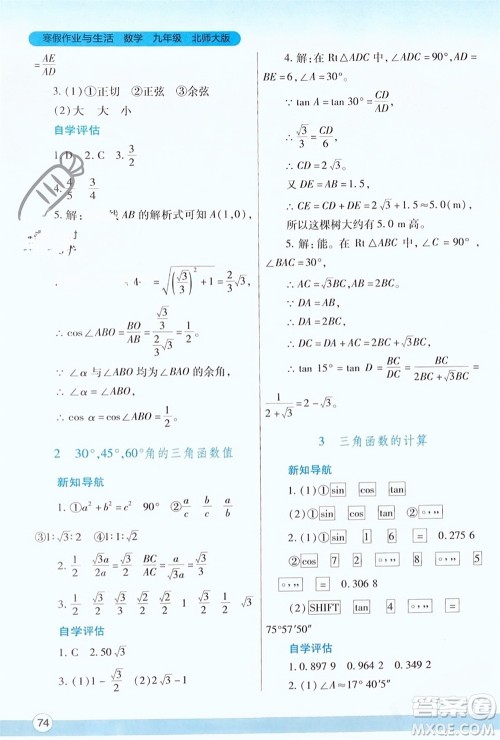 寒假作业与生活 数学 九年级 北师大版
=AE/AD
3. (1) ①正切 ②正弦 ③余弦
(2) 大 大 小
自学评估
1. D 2. C 3. 3/2
4. 4/5 3/4
5. 解: AB 的解析式可知 A(1,0),
∴ cos∠ABO=BO/AB=(√3/3)/(2√3/3)=1/2.
∵ ∠α 与∠ABO 均为∠BAO 的余角,
∴ cos∠α=1/2.
2 30°,45°,60°角的三角函数值
新知导航
1. (1) ①a²+b²=c² 90° ② a/c b/c a/b
③1:√3:2 ④1:1:√2
2. 1/2 √3/2 √3/3 BC/AC 1/√3 √3/3
3. 1/2 √2/2 √3/2 √3/2 √2/2 1/2 √3/3 1 √3
自学评估
1. C 2. 50√3
74
4. 解: 在 Rt△ADC 中, ∠A=30°, AD=BE=6,
∵ tan A=tan 30°=CD/AD,
∴ √3/3=CD/6.
∴ CD=2√3.
又 DE=AB=1.6,
∴ CE=CD+DE=2√3+1.6≈5.0(m).
所以这棵树大约有 5.0 m 高.
5. 解: 能. 在 Rt△ABC 中, ∠C=90°,
∠BAC=30°,
∴ AC=√3BC, AB=2BC.
∵ DA=AB,
∴ DA=2BC.
∴ DC=DA+AC=2BC+√3BC.
∴ tan 15°=tan D=BC/DC=BC/(2BC+√3BC)=
1/(2+√3)=2-√3.
3 三角函数的计算
新知导航
1. (1) ①sin cos tan ②°'″
(2) ①sin 1 6 = 0.275 6
②cos 7 2 °'″ 
°'″ = 0.306 8
(2) SHIFT °'″
75°57′50″
自学评估
1. 0.897 9 0.902 1 0.364 0
2. (1) ∠A≈17°27′5″
答案圈